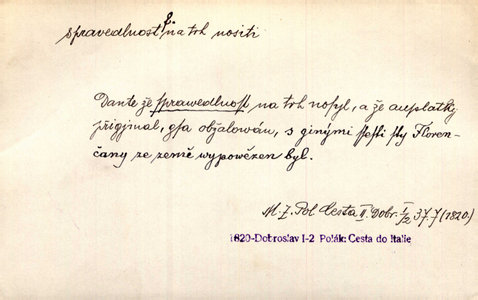 spravedlnost 2. na trh nositi
Dante že sprawedlnost na trh nosyl, a že auplatky
přigjmal, gsa obžalowán, s ginými šesti sty Floren-
čany ze země wypowězen byl.
M. Z. Pol Cesta II. Dobr. I/2 37.7 (1820.)
1820-Dobroslav I-2 Polák: Cesta do Italie